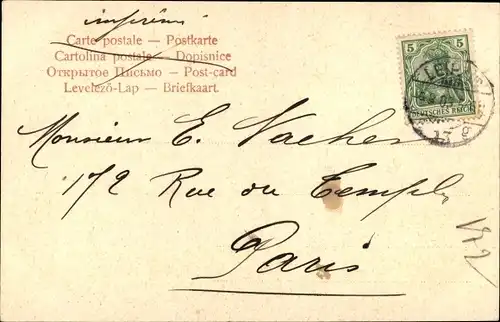 imprimé
Carte postale — Postkarte
Cartolina postale — Dopisnice
Открытое Письмо — Post-card
Levelező-Lap — Briefkaart.
5 5
DEUTSCHES REICH
Monsieur E. Vacher
172 Rue du Temple
Paris
172